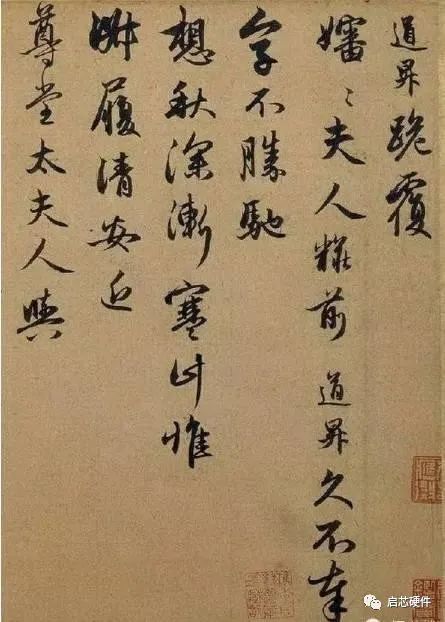 道昇跪覆
嬸〻夫人粧前道昇久不奉
字不勝馳
想秋深漸寒計惟
淑履清安近
尊堂太夫人與
启芯硬件